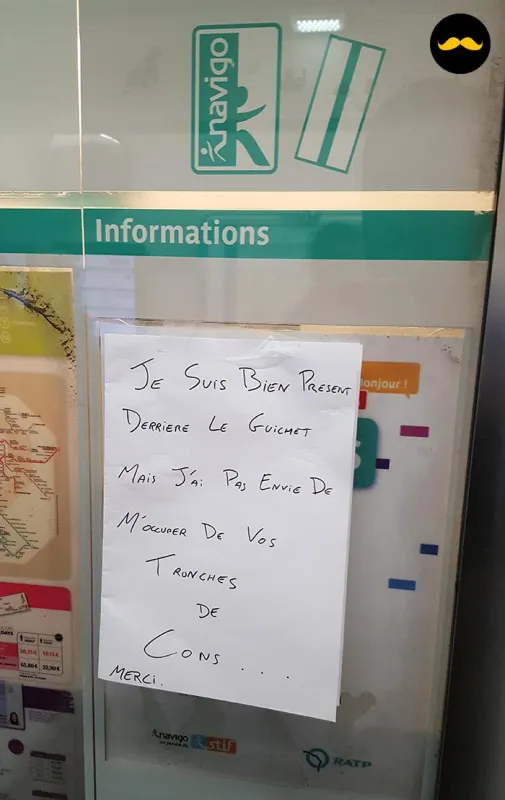 navigo
Informations
Bonjour !
JE SUIS BIEN PRESENT
DERRIERE LE GUICHET
MAIS J'Ai PAS ENViE DE
M'OCCUPER DE VOS
TRONCHES
DE
CONS....
MERCi.
navigo
stif
RATP